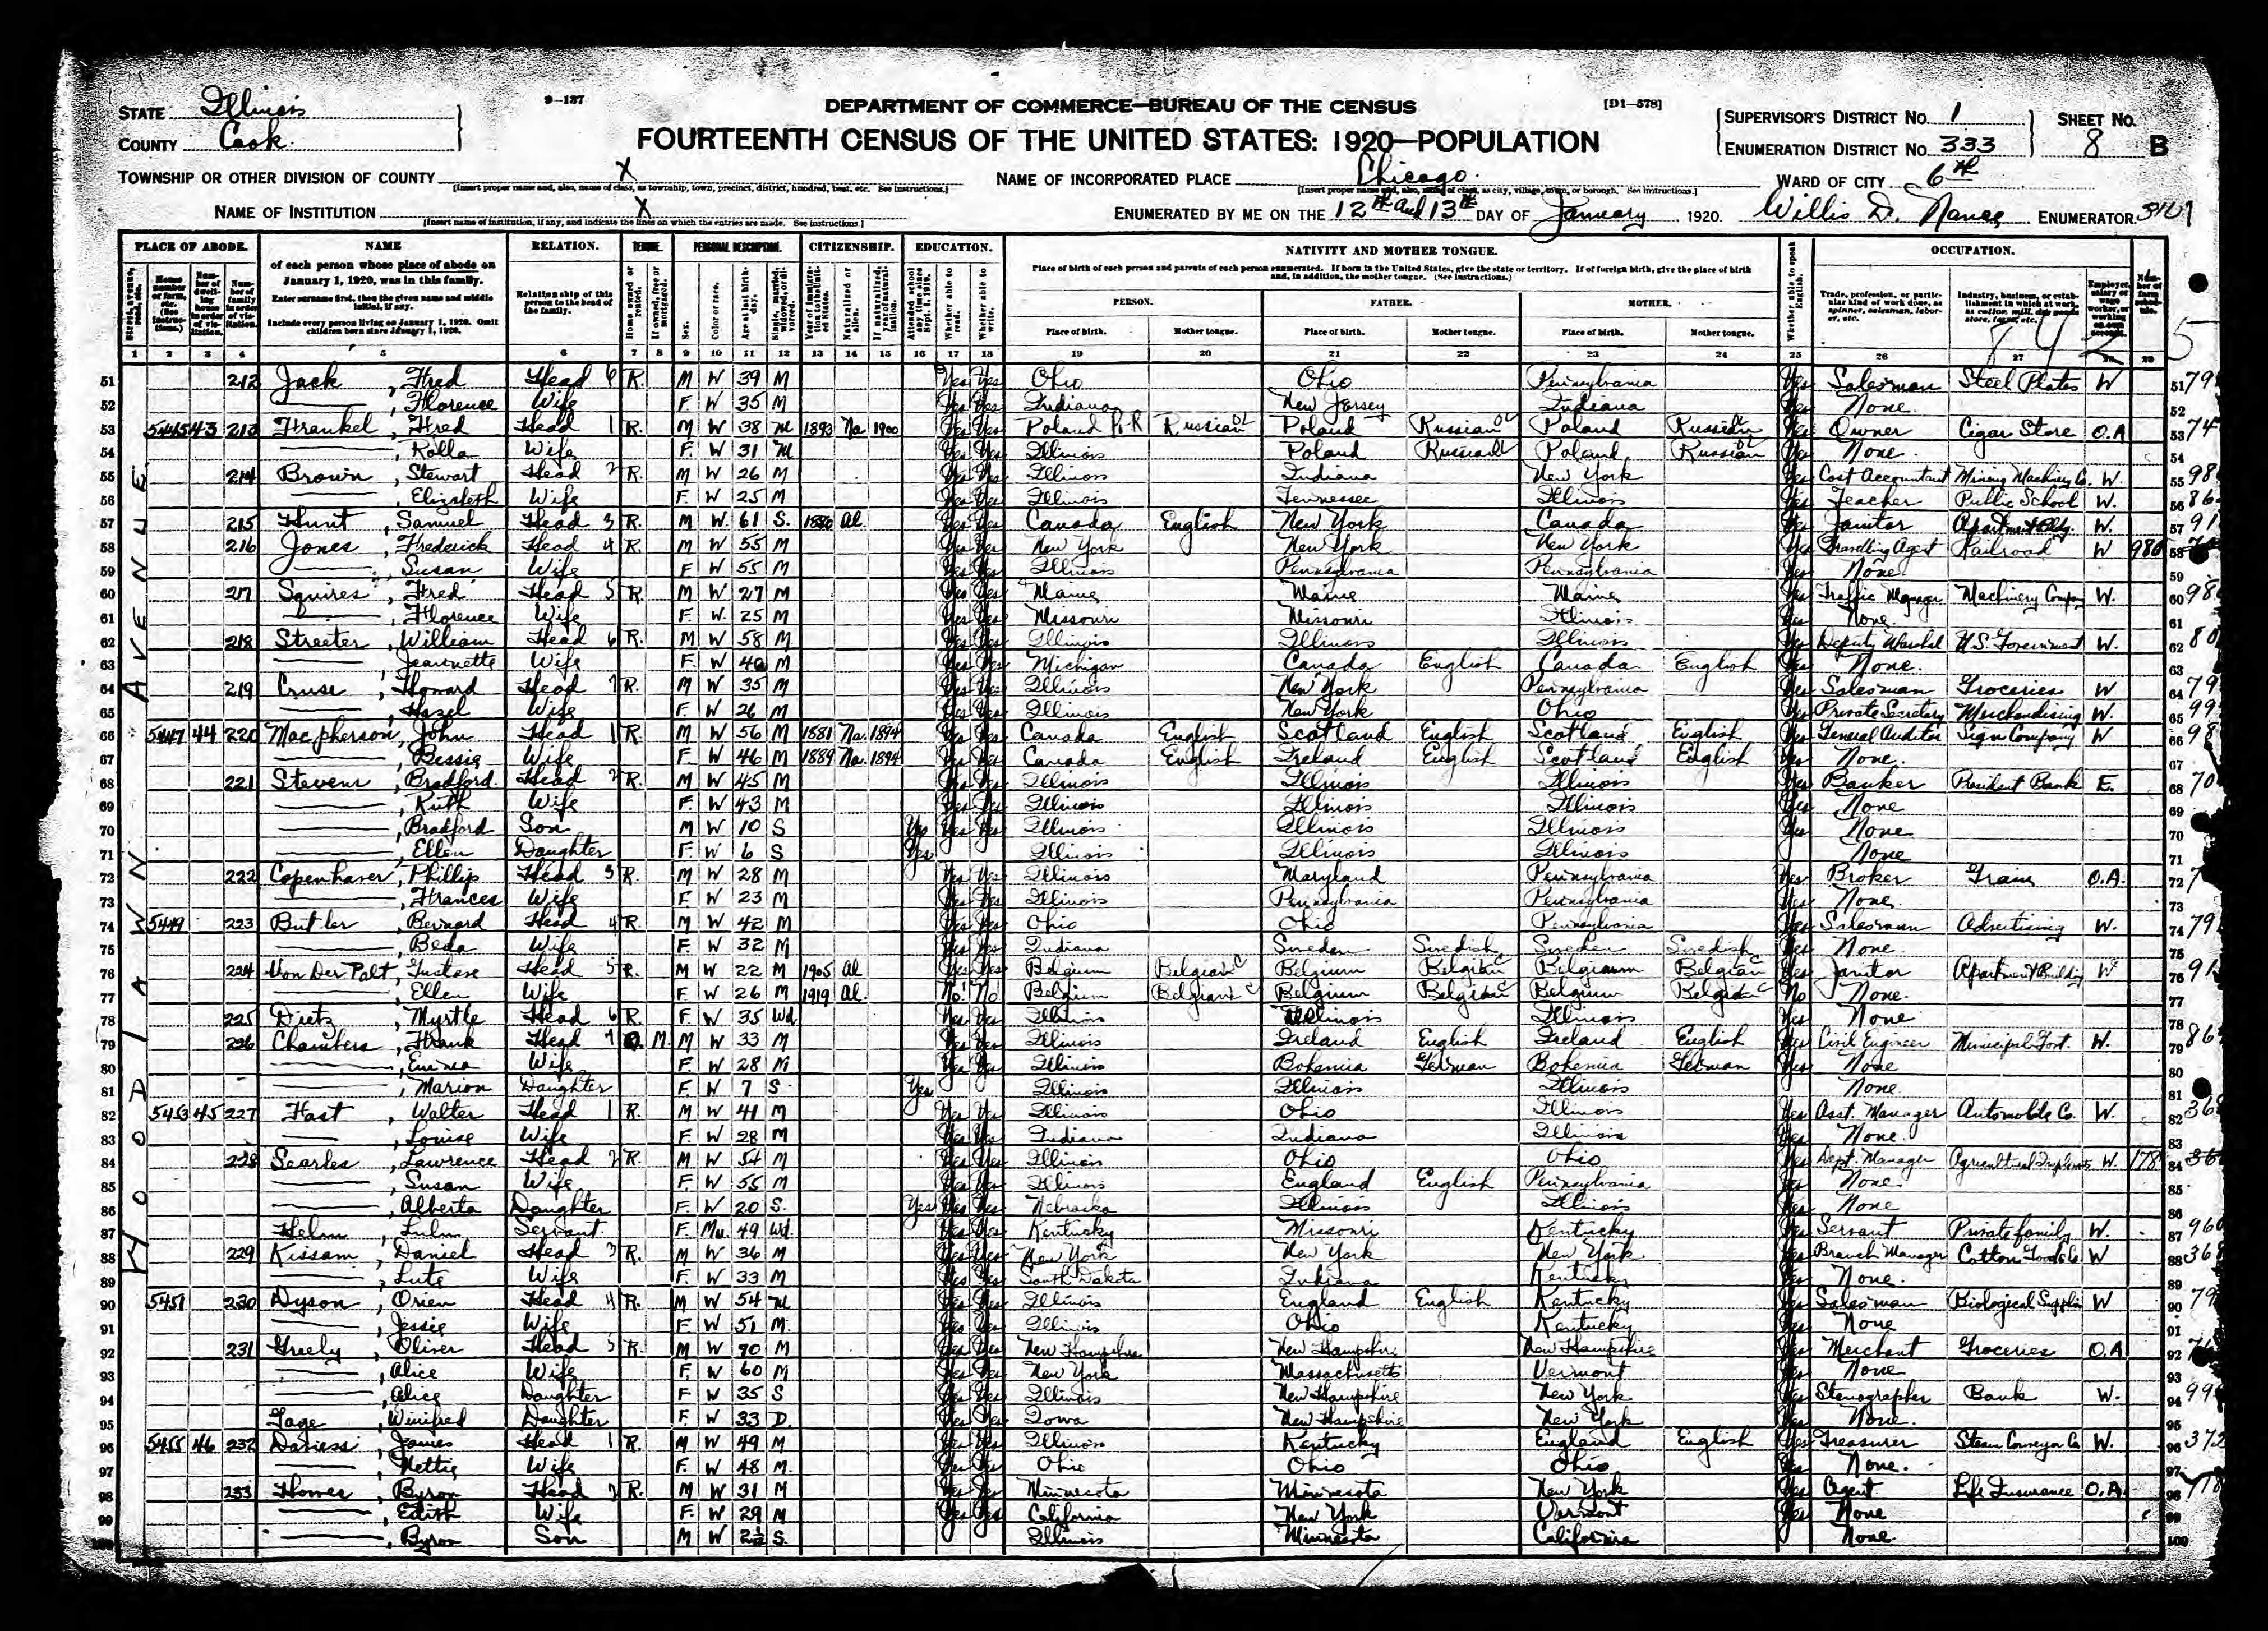 STATE Illinois
COUNTY Cook
9-137
DEPARTMENT OF COMMERCE—BUREAU OF THE CENSUS
[D1-578]
FOURTEENTH CENSUS OF THE UNITED STATES: 1920—POPULATION
SUPERVISOR'S DISTRICT No. 1
ENUMERATION DISTRICT No. 333
SHEET No. 8 B
TOWNSHIP OR OTHER DIVISION OF COUNTY X
[Insert proper name and, also, name of class, as township, town, precinct, district, hundred, beat, etc. See instructions.]
NAME OF INCORPORATED PLACE Chicago.
[Insert proper name and, also, name of class, as city, village, town, or borough. See instructions.]
WARD OF CITY 6th
NAME OF INSTITUTION X
[Insert name of institution, if any, and indicate the lines on which the entries are made. See instructions]
ENUMERATED BY ME ON THE 12th and 13th DAY OF January, 1920. Willis D. Nance, ENUMERATOR.
PLACE OF ABODE. NAME RELATION. TENURE. PERSONAL DESCRIPTION. CITIZENSHIP. EDUCATION. NATIVITY AND MOTHER TONGUE. OCCUPATION.
of each person whose place of abode on January 1, 1920, was in this family.
Enter surname first, then the given name and middle initial, if any.
Include every person living on January 1, 1920. Omit children born since January 1, 1920.
Relationship of this person to the head of the family.
Place of birth of each person and parents of each person enumerated. If born in the United States, give the state or territory. If of foreign birth, give the place of birth and, in addition, the mother tongue. (See instructions.)
PERSON. FATHER. MOTHER.
Place of birth. Mother tongue. Place of birth. Mother tongue. Place of birth. Mother tongue.
Whether able to speak English.
1 2 3 4 5 6 7 8 9 10 11 12 13 14 15 16 17 18 19 20 21 22 23 24 25 26 27 28 29
HOODLAWN AVENUE
51 212 Jack, Fred Head 6 R. M W 39 M Yes Yes Ohio Ohio Pennsylvania Yes Salesman Steel Plates W 51
52 , Florence Wife F W 35 M Yes Yes Indiana New Jersey Indiana Yes None. 52
53 5445 43 213 Frankel, Fred Head 1 R. M W 38 M 1893 Na 1900 Yes Yes Poland Russian Poland Russian Poland Russian Yes Owner Cigar Store O.A 53
54 , Rolla Wife F. W 31 M Yes Yes Illinois Poland Russian Poland Russian Yes None. 54
55 214 Brown, Stewart Head 2 R. M W 26 M Yes Yes Illinois Indiana New York Yes Cost Accountant Mining Machinery Co. W. 55
56 , Elizabeth Wife F. W 25 M Yes Yes Illinois Tennessee Illinois Yes Teacher Public School W. 56
57 215 Hunt, Samuel Head 3 R. M W. 61 S. 1880 Al. Yes Yes Canada English New York Canada Yes Janitor Apartment Bldg. W. 57
58 216 Jones, Frederick Head 4 R. M W 55 M Yes Yes New York New York New York Yes Travelling Agent Railroad W 58
59 , Susan Wife F W 55 M Yes Yes Illinois Pennsylvania Pennsylvania Yes None. 59
60 217 Squires, Fred Head 5 R M W 27 M Yes Yes Maine Maine Maine Yes Traffic Manager Machinery Compny W. 60
61 , Florence Wife F W. 25 M Yes Yes Missouri Missouri Illinois Yes None. 61
62 218 Streeter, William Head 6 R. M W 58 M Yes Yes Illinois Illinois Illinois Yes Deputy Marshal U.S. Government W. 62
63 , Jeannette Wife F. W 40 M Yes Yes Michigan Canada English Canada English Yes None. 63
64 219 Cruse, Howard Head 7 R. M W 35 M Yes Yes Illinois New York Pennsylvania Yes Salesman Groceries W 64
65 , Hazel Wife F. W 26 M Yes Yes Illinois New York Ohio Yes Private Secretary Merchandising W. 65
66 5447 44 220 Macpherson, John Head 1 R M W 56 M 1881 Na. 1894 Yes Yes Canada English Scotland English Scotland English Yes General Auditor Sign Company W 66
67 , Bessie Wife F. W 46 M 1889 Na. 1894 Yes Yes Canada English Ireland English Scotland English Yes None. 67
68 221 Stevens, Bradford. Head 2 R. M W 45 M Yes Yes Illinois Illinois Illinois Yes Banker President Bank E. 68
69 , Ruth Wife F. W 43 M Yes Yes Illinois Illinois Illinois Yes None 69
70 , Bradford Son M W 10 S Yes Yes Yes Illinois Illinois Illinois Yes None 70
71 , Ellen Daughter F. W 6 S Yes Illinois Illinois Illinois None 71
72 222 Copenhaver, Phillip Head 3 R. M W 28 M Yes Yes Illinois Maryland Pennsylvania Yes Broker Grain O.A. 72
73 , Frances Wife F W 23 M Yes Yes Illinois Pennsylvania Pennsylvania Yes None. 73
74 5449 223 Butler, Bernard Head 4 R. M W 42 M Yes Yes Ohio Ohio Pennsylvania Yes Salesman Advertising W. 74
75 , Beda Wife F. W 32 M Yes Yes Indiana Sweden Swedish Sweden Swedish Yes None. 75
76 224 Von Der Palt, Gustave Head 5 R. M W 22 M 1905 Al Yes Yes Belgium Belgian Belgium Belgian Belgium Belgian Yes Janitor Apartment Building W 76
77 , Ellen Wife F W 26 M 1919 Al. No No Belgium Belgian Belgium Belgian Belgium Belgian No None. 77
78 225 Dietz, Myrtle Head 6 R. F W 35 Wd Yes Yes Illinois Illinois Illinois Yes None 78
79 226 Chambers, Frank Head 7 O M. M W 33 M Yes Yes Illinois Ireland English Ireland English Yes Civil Engineer Municipal Govt. W. 79
80 , Emma Wife F. W 28 M Yes Yes Illinois Bohemia German Bohemia German Yes None 80
81 , Marion Daughter F. W 7 S Yes Illinois Illinois Illinois None. 81
82 5453 45 227 Fast, Walter Head 1 R. M W 41 M Yes Yes Illinois Ohio Illinois Yes Asst. Manager Automobile Co. W. 82
83 , Louise Wife F. W 28 M Yes Yes Indiana Indiana Illinois Yes None. 83
84 228 Searles, Lawrence Head 2 R. M W 54 M Yes Yes Illinois Ohio Ohio Yes Dept. Manager Agricultural Implements W. 84
85 , Susan Wife F. W 55 M Yes Yes Illinois England English Pennsylvania Yes None. 85
86 , Alberta Daughter F. W 20 S. Yes Yes Yes Nebraska Illinois Illinois Yes None 86
87 Helm, Lulu Servant F. Mu. 49 Wd. Yes Yes Kentucky Missouri Kentucky Yes Servant Private family W. 87
88 229 Kissam, Daniel Head 3 R. M W 36 M Yes Yes New York New York New York Yes Branch Manager Cotton Goods Co W 88
89 , Lute Wife F. W 33 M Yes Yes South Dakota Indiana Kentucky Yes None. 89
90 5451 230 Dyson, Orien Head 4 R. M W 54 M Yes Yes Illinois England English Kentucky Yes Salesman Biological Supplies W 90
91 , Jessie Wife F W 51 M. Yes Yes Illinois Ohio Kentucky Yes None 91
92 231 Greely, Oliver Head 5 R. M W 90 M Yes Yes New Hampshire New Hampshire New Hampshire Yes Merchant Groceries O.A 92
93 , Alice Wife F W 60 M Yes Yes New York Massachusetts Vermont Yes None 93
94 , Alice Daughter F W 35 S Yes Yes Illinois New Hampshire New York Yes Stenographer Bank W. 94
95 Gage, Winifred Daughter F. W 33 D. Yes Yes Iowa New Hampshire New York Yes None. 95
96 5455 46 232 Daviess, James Head 1 R. M W 49 M Yes Yes Illinois Kentucky England English Yes Treasurer Steam Conveyor Co W. 96
97 , Nettie Wife F. W 48 M. Yes Yes Ohio Ohio Ohio Yes None. 97
98 233 Homer, Byron Head 2 R. M W 31 M Yes Yes Minnesota Minnesota New York Yes Agent Life Insurance O.A. 98
99 , Edith Wife F. W 29 M Yes Yes California New York Vermont Yes None 99
100 , Byron Son M W S. Illinois Minnesota California None. 100